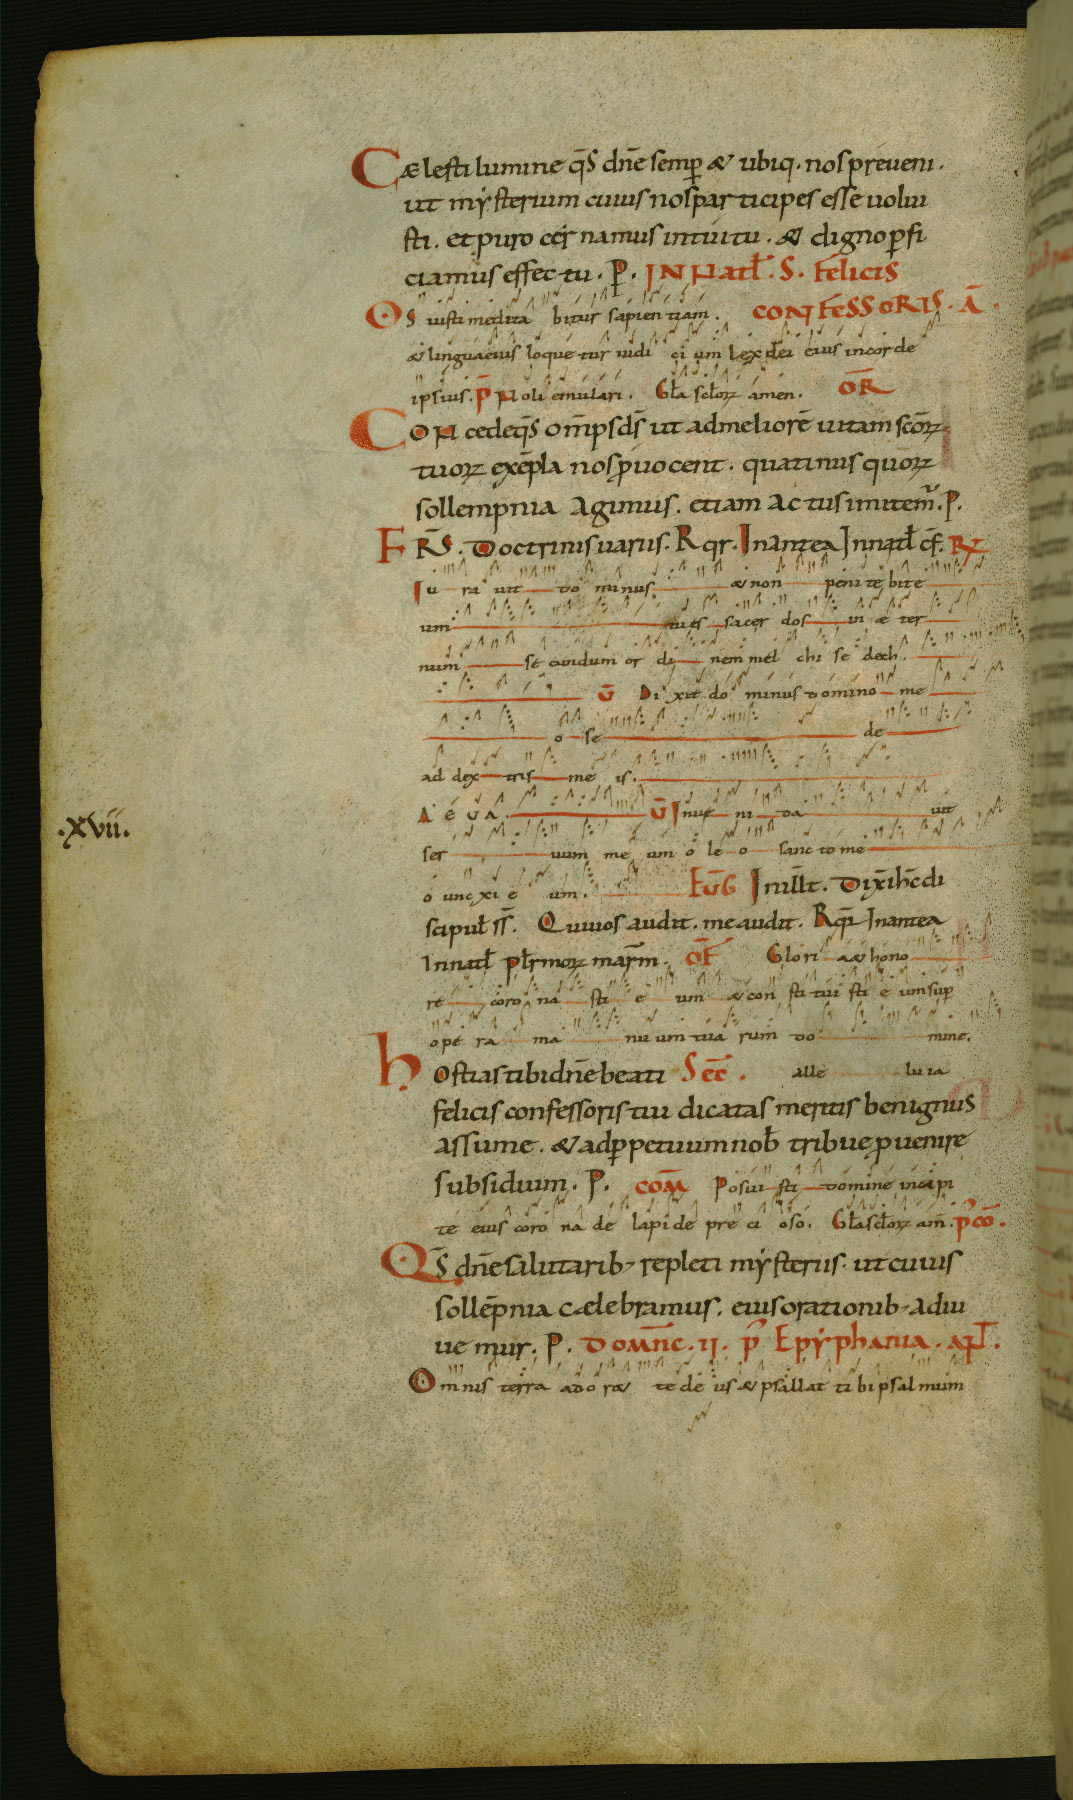 Cælesti lumine q̄s dn̄e semp̄ & ubiq. nos preueni.
ut mẏsterium cuius nos participes esse uolui
sti. et puro cernamus intuitu. & digno p̄fi
ciamus effectu. P. IN Natł. S. Felicis
Os iusti medita bitur sapien tiam. CONFESSORIS. A̅.
& lingua eius loque tur iudi ci um lex dei eius in corde
ipsius. p̅ Noli emulari. Gła scłorꝝ amen. OR̅
CON cede q̄s om̄ps ds̄ ut ad meliorē uitam scōrꝝ
tuorꝝ exēpla nos p̄uocent. quatinus quorꝝ
sollempnia Agimus. etiam Actus imitem̄. P.
FR̄S. Doctrinis uariis. Rqr. In antea In natł cf̄. R̷
Iu ra uit do minus. & non peni te bit e
um tu es sacer dos in æ ter
num se cundum or di nem mel chi se dech.
U̅ Di xit do minus domino me
o se de
ad dex tris me is.
A E U A. U̅ Inue ni da uit
ser uum me um o le o sanc to me
o unc xi e um. EUḠ In illt̄. Dix̄ ih̄c di
scipuł ss̄. Qui uos audit. me audit. Rqr̄ In antea
In natł płrmorꝝ mar̄m. OF̅ Glori a & hono
re coro na sti e um & con sti tui sti e um sup̄
ope ra ma nu um tua rum do mine.
hostias tibi dn̄e beati SEC̅. alle lu ia
felicis confessoris tui dicatas meritis benignus
assume. & ad p̄petuum nob̄ tribue p̄uenire
subsidium. P. COM̅ Posui sti domine in capi
te eius coro na de lapi de pre ci oso. Gła scłorꝝ am̄. p̅ cō.
Qs̄ dn̄e salutarib; repleti mẏsteriis. ut cuius
sollēpnia cælebramus. eius orationib; adiu
ue mur. P. DOM̅NC. II. p̄ Epẏphania. apł.
.xvii.
Omnis terra ado r& te de us & psallat ti bi psal mum